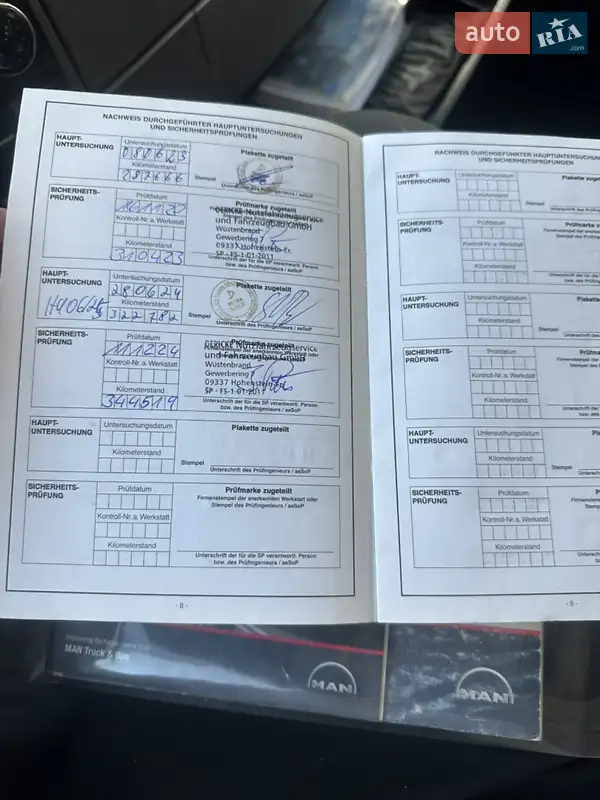 auto RIA .com
NACHWEIS DURCHGEFÜHRTER HAUPTUNTERSUCHUNGEN
UND SICHERHEITSPRÜFUNGEN
HAUPT-
UNTERSUCHUNG
Untersuchungsdatum
080623
Kilometerstand
287666
Stempel
Plakette zugeteilt
Unterschrift des Prüfingenieurs / aaSoP
SICHERHEITS-
PRÜFUNG
Prüfdatum
Kontroll-Nr. a. Werkstatt
Kilometerstand
310423
Prüfmarke zugeteilt
GERICKE Nutzfahrzeugservice
und Fahrzeugbau GmbH
Wüstenbrand
Gewerbering 7
09337 Hohenstein-Er.
SP - FS-1-01-2011
Unterschrift der für die SP verantwortl. Person
bzw. des Prüfingenieurs / aaSoP
HAUPT-
UNTERSUCHUNG
Untersuchungsdatum
280624
Kilometerstand
322782
Stempel
Plakette zugeteilt
Unterschrift des Prüfingenieurs / aaSoP
SICHERHEITS-
PRÜFUNG
Prüfdatum
111224
Kontroll-Nr. a. Werkstatt
Kilometerstand
344519
Prüfmarke zugeteilt
GERICKE Nutzfahrzeugservice
und Fahrzeugbau GmbH
Wüstenbrand
Gewerbering 7
09337 Hohenstein
SP - FS-1-01-2011
Unterschrift der für die SP verantwortl. Person
bzw. des Prüfingenieurs / aaSoP
HAUPT-
UNTERSUCHUNG
Untersuchungsdatum
Kilometerstand
Stempel
Plakette zugeteilt
Unterschrift des Prüfingenieurs / aaSoP
SICHERHEITS-
PRÜFUNG
Prüfdatum
Kontroll-Nr. a. Werkstatt
Kilometerstand
Prüfmarke zugeteilt
Firmenstempel der anerkannten Werkstatt oder
Stempel des Prüfingenieurs / aaSoP
Unterschrift der für die SP verantwortl. Person
bzw. des Prüfingenieurs / aaSoP
- 8 -
NACHWEIS DURCHGEFÜHRTER HAUPTUNTERSUCHUN
UND SICHERHEITSPRÜFUNGEN
HAUPT-
UNTERSUCHUNG
Untersuchungsdatum
Kilometerstand
Stempel
Plakette
SICHERHEITS-
PRÜFUNG
Prüfdatum
Kontroll-Nr. a. Werkstatt
Kilometerstand
HAUPT-
UNTERSUCHUNG
Untersuchungsdatum
Kilometerstand
Stempel
SICHERHEITS-
PRÜFUNG
Prüfdatum
Kontroll-Nr. a. Werkstatt
Kilometerstand
HAUPT-
UNTERSUCHUNG
Untersuchungsdatum
Kilometerstand
Stempel
SICHERHEITS-
PRÜFUNG
Prüfdatum
Kontroll-Nr. a. Werkstatt
Kilometerstand
- 9 -
MAN Truck & Bus
MAN
MAN